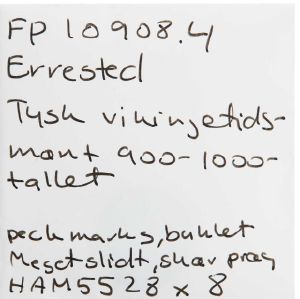 FP 10908.4
Errested
Tysk vikingetids-
mønt 900-1000-
tallet
peck marks, buklet
Meget slidt, skar præg
HAM5528 x 8